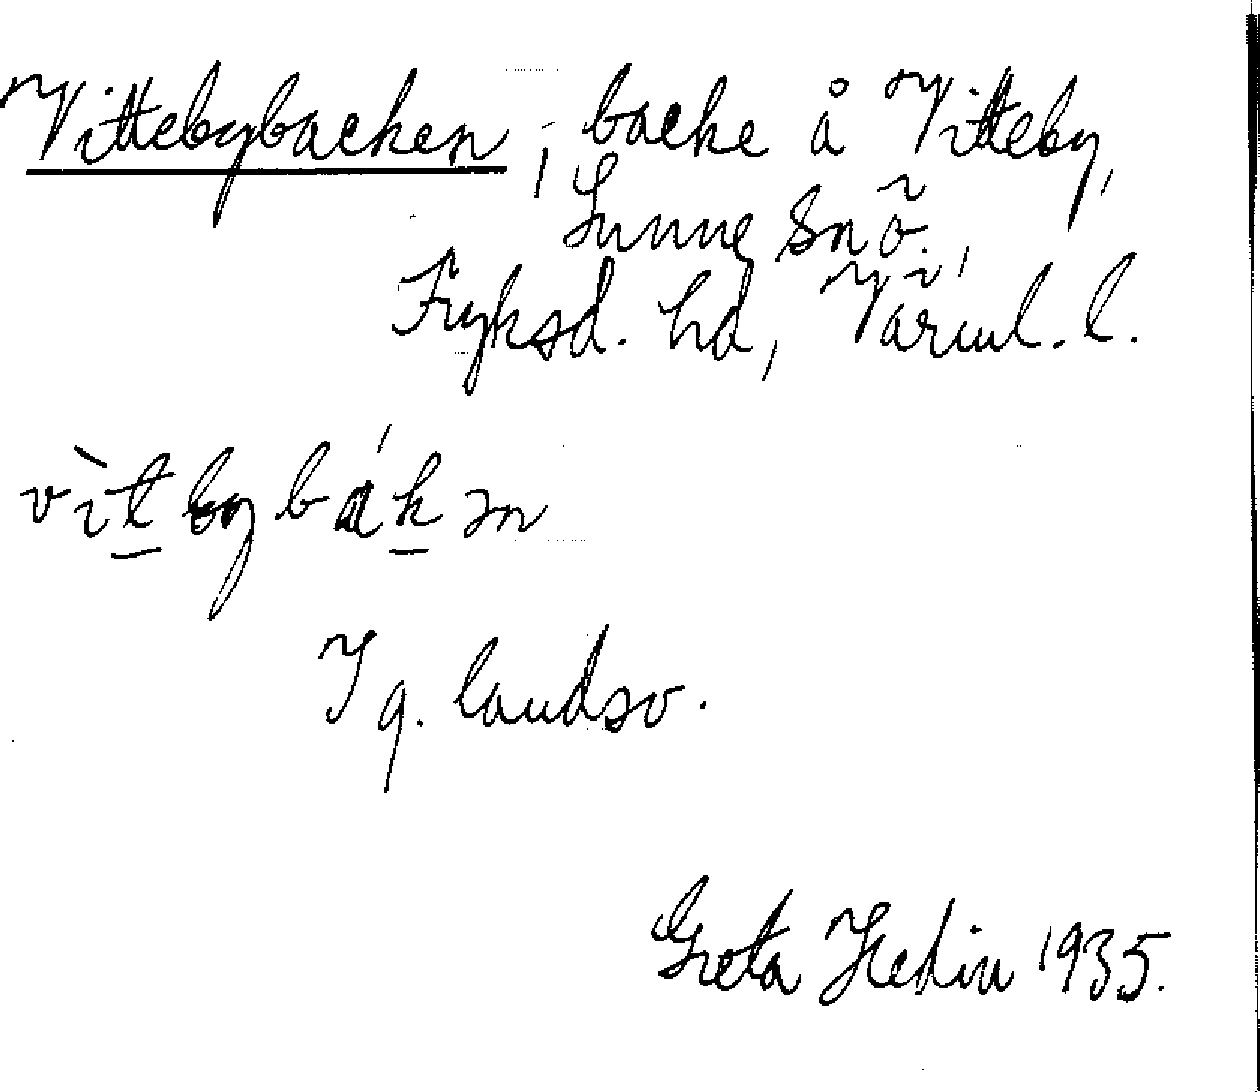 Vittebybacken; backe å Vitteby,
Sunne snõ.,
Fryksd. hd, Värml. l.
vìt̲bybák̲ən
Ig. landsv.
Greta Hedin 1935.